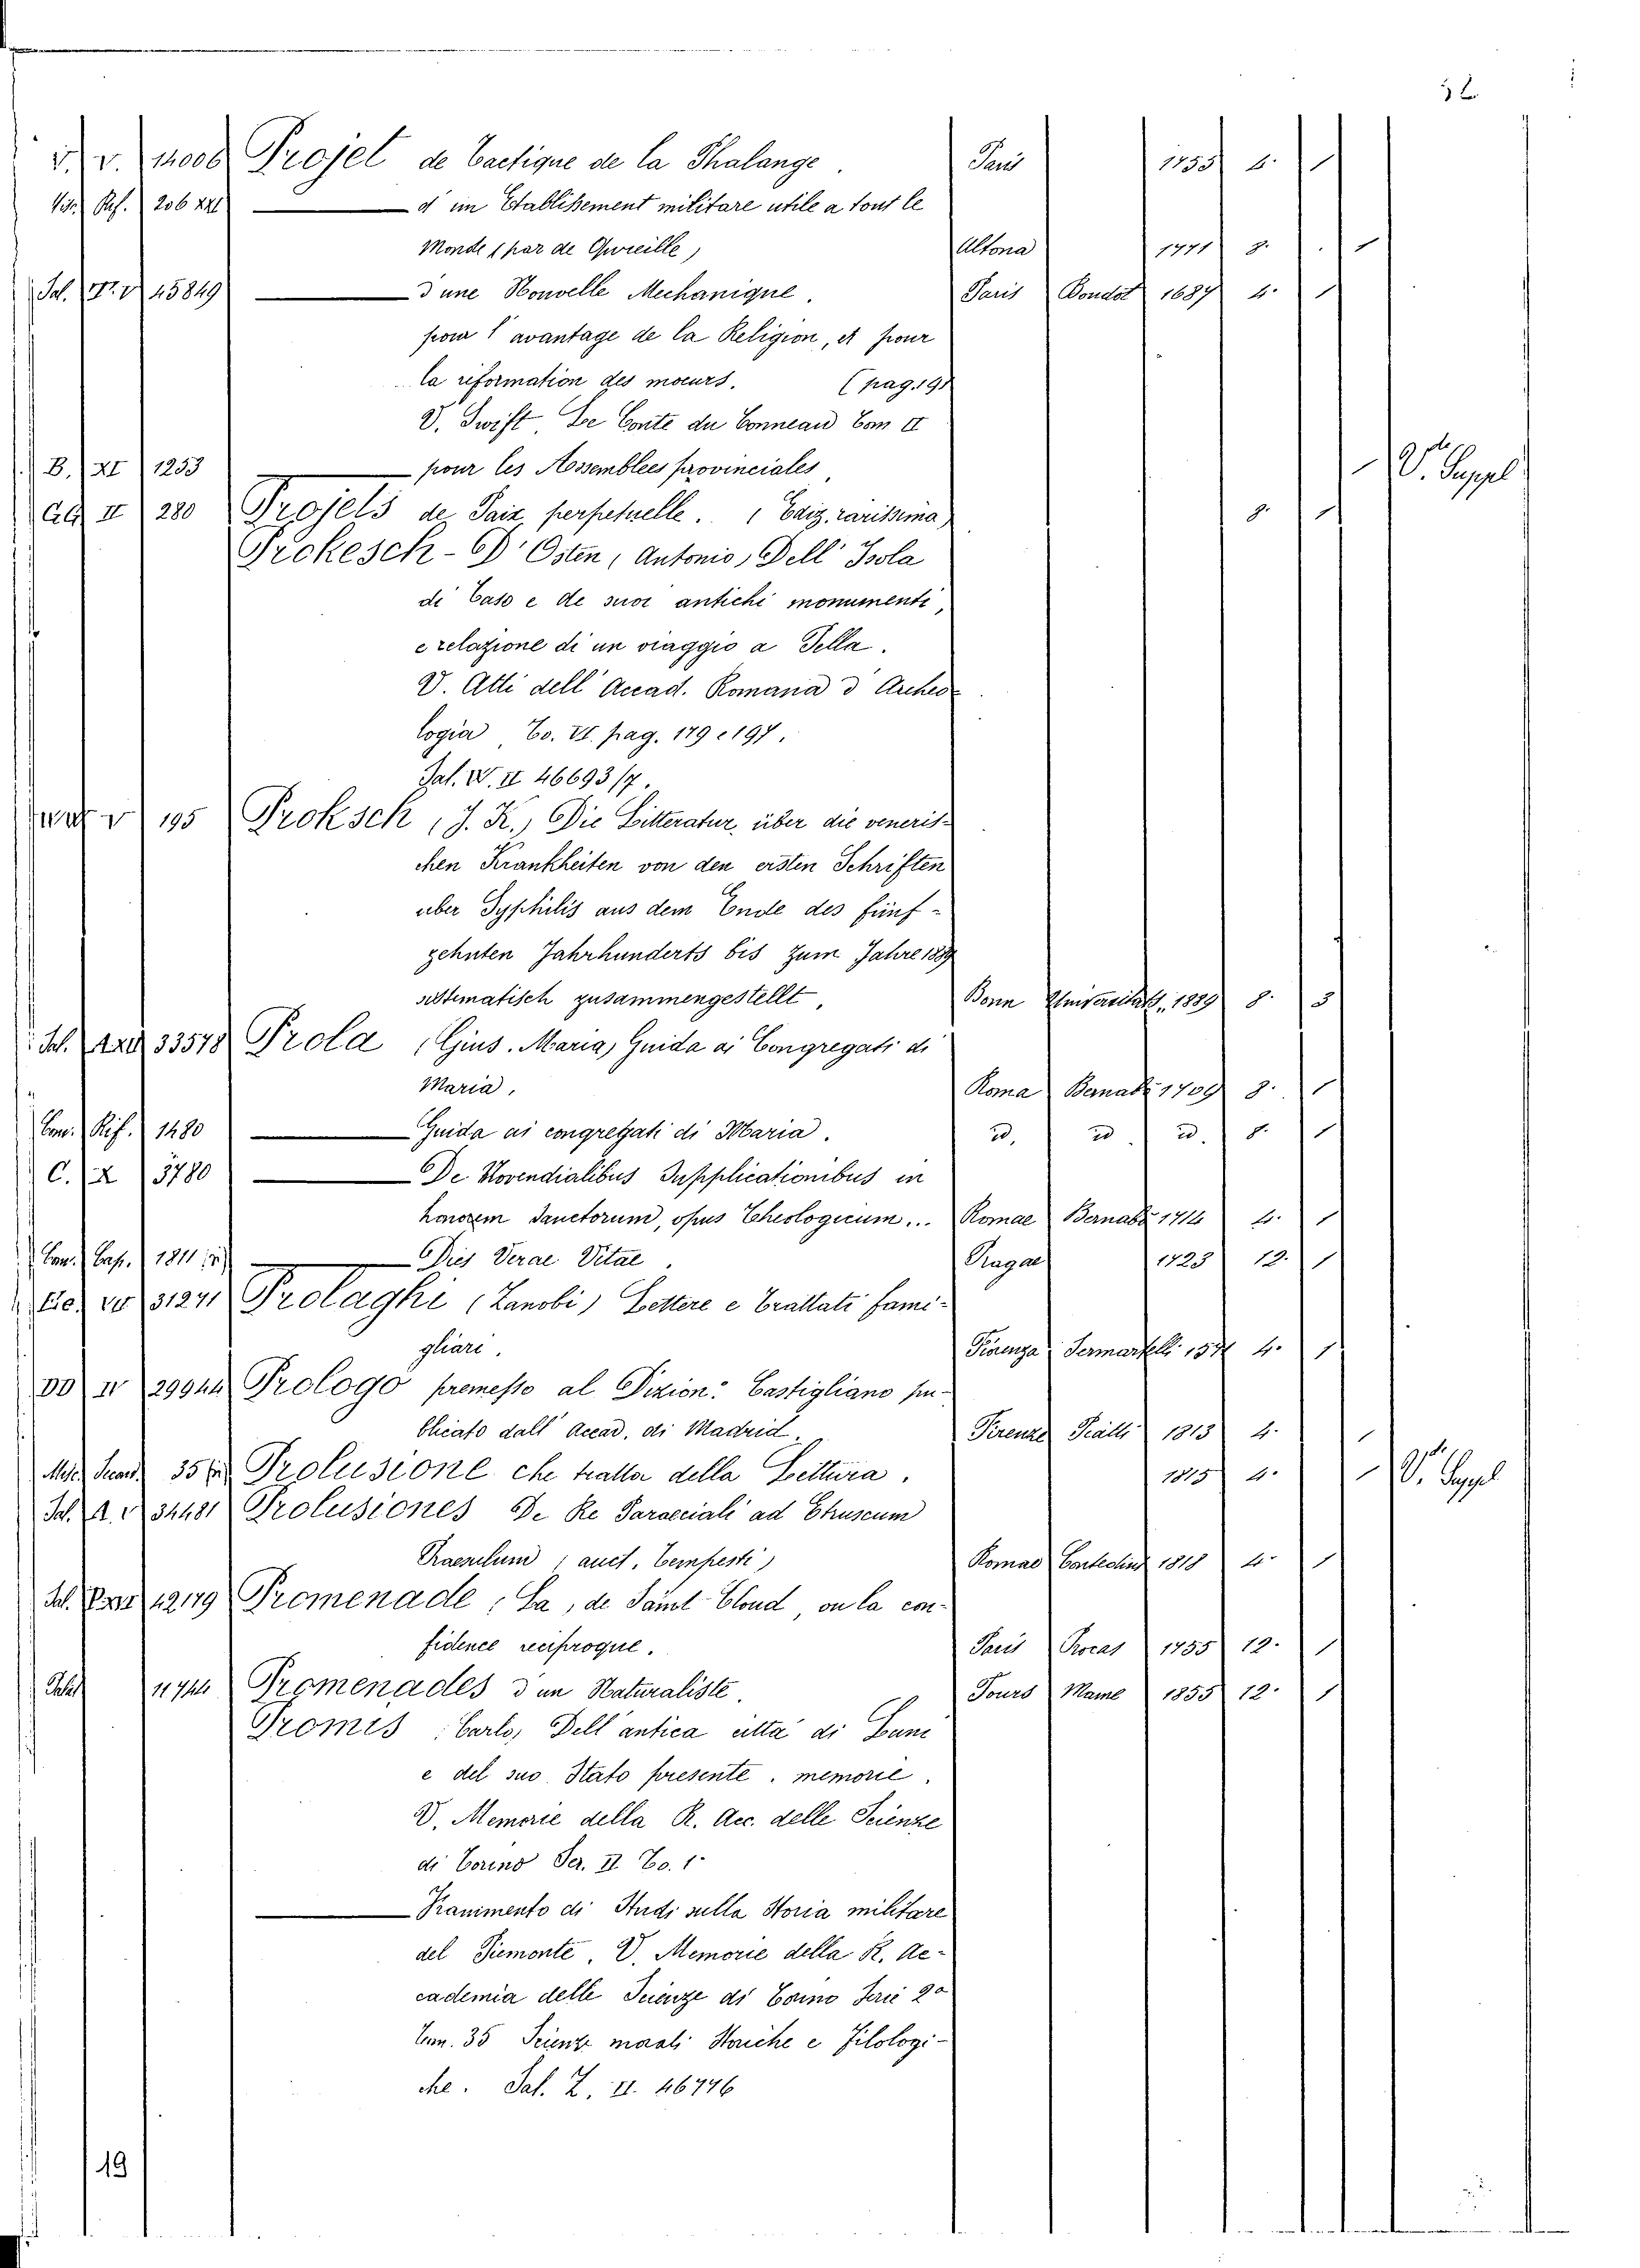 V. 14006 Projet de Tactique de la Phalange. Paris 1755 4. 1
Vit. Ref. 206 XXI — d'un Etablissement militare utile a tout le
Monde (par de Gvreille) Altona 1771 8. 1
Sal. 45849 — d'une Nouvelle Mechanique. Paris Bondot 1687 4. 1
pour l'avantage de la Religion, et pour
la reformation des moeurs. (pag. 191
V. Swift, Le Conte du Tonneau Tom II
B. XI 1253 — pour les Assemblees provinciales, V. Suppl
II 280 Projets de Paix perpetuelle. (Ediz. rarissima) 8. 1
Prokesch-D'Osten, Antonio, Dell' Isola
di Taso e de suoi antichi monumenti,
e relazione di un viaggio a Pella.
V. Atti dell' Accad. Romana d'Archeo
logia, To. VI. pag. 179 e 197.
Sal. IV. II 46693/7.
V 195 Proksch, J. K., Die Litteratur, über die veneris-
chen Krankheiten von den ersten Schriften
über Syphilis aus dem Ende des fünf-
zehnten Jahrhunderts bis zum Jahre 1889
sistematisch zusammengestellt, Bonn Universitäts, 1889 8. 3
Sal. 33578 Prola (Gius. Maria) Guida ai Congregati di
Maria. Roma Bernabò 1709 8. 1
Com. Rif. 1480 — Guida ai congregati di Maria. id. id. id. 8. 1
C. X 3780 — De Novendialibus Supplicationibus in
honorem Sanctorum, opus Theologicum... Romae Bernabò 1714 4. 1
Com. Cap. 1811 — Dies Verae Vitae. Pragae 1723 12. 1
31271 Prolaghi (Zanobi) Lettere e Trattati fami-
gliari. Firenza Sermartelli 4. 1
DD IV 29944 Prologo premesso al Dizion. Castigliano pu-
blicato dall' Accad. di Madrid. Firenze Piatti 1813 4. 1
35 Prolusione che tratta della Pittura. 1815 4. V. Suppl
Sal. A. V 34481 Prolusiones De Re Paroeciali ad Etruscum
Praesulum (auct. Tempesti) Romae Contedini 1818 4. 1
Sal. 42179 Promenade, La, de Saint-Cloud, ou la con-
fidence reciproque. Paris Rocas 1755 12. 1
11744 Promenades d'un Naturaliste. Tours Mame 1855 12. 1
Promis Carlo, Dell'antica città di Luni
e del suo Stato presente. memorie.
V. Memorie della R. Acc. delle Scienze
di Torino Ser. II To. 1
— Frammento di Studi sulla Storia militare
del Piemonte. V. Memorie della R. Ac-
cademia delle Scienze di Torino Serie 2a
Tom. 35 Scienze morali Storiche e Filologi-
che. Sal. Z. II. 46746
19